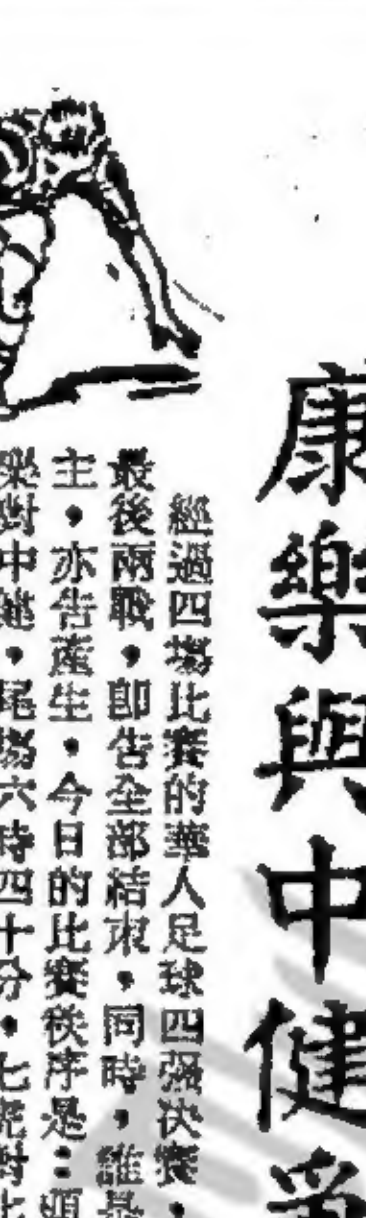 康樂與中健爭
經過四場比賽的華人足球四强决賽，
最後兩戰，即告全部結束，同時，誰是
主，亦告產生，今日的比賽秩序是：頭
樂對中健，尾場六時四十分，七虎對